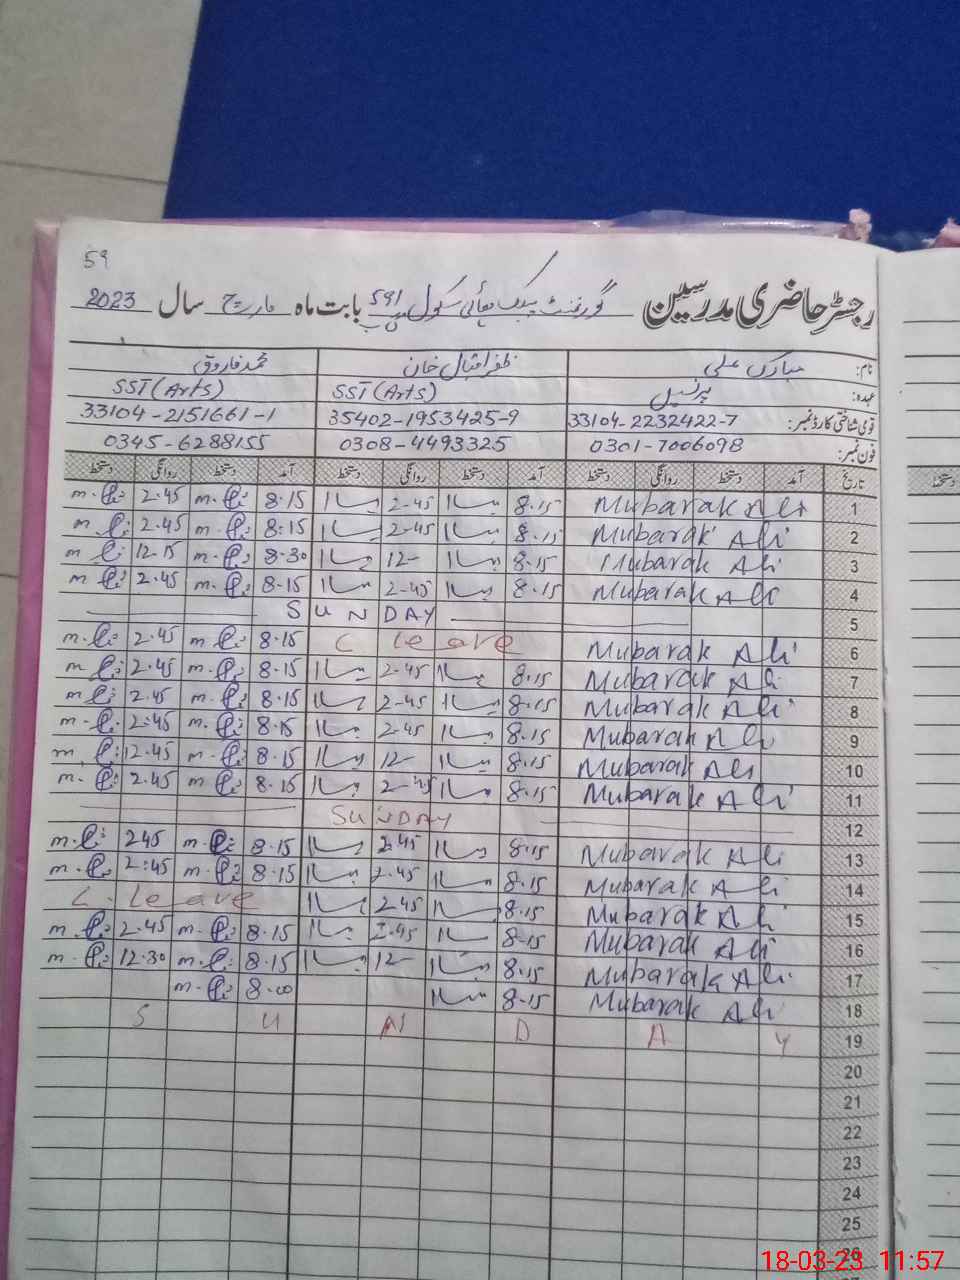 59
رجسٹر حاضری مدرسین گورنمنٹ پبلک ہائی سکول 591 بابت ماہ مارچ سال 2023
نام: مبارک علی ظفر اقبال خان محمد فاروق
عہدہ: پرنسپل SST (Arts) SST (Arts)
قومی شناختی کارڈ نمبر: 33104-2232422-7 35402-1953425-9 33104-2151661-1
فون نمبر: 0301-7006098 0308-4493325 0345-6288155
تاریخ آمد دستخط روانگی دستخط آمد دستخط روانگی دستخط آمد دستخط روانگی دستخط
1 Mubarak Ali 8.15 2-45 8.15 2.45
2 Mubarak Ali 8.15 2-45 8.15 2.45
3 Mubarak Ali 8.15 12- 8.30 12-15
4 Mubarak Ali 8.15 2-45 8.15 2.45
5 SUNDAY
6 Mubarak Ali C leave 8.15 2.45
7 Mubarak Ali 8.15 2.45 8.15 2.45
8 Mubarak Ali 8.15 2-45 8.15 2.45
9 Mubarak Ali 8.15 2.45 8.15 2:45
10 Mubarak Ali 8.15 12- 8.15 12.45
11 Mubarak Ali 8.15 2-45 8.15 2.45
12 SUNDAY
13 Mubarak Ali 8.15 2.45 8.15 245
14 Mubarak Ali 8.15 2.45 8.15 2:45
15 Mubarak Ali 8.15 2.45 C. leave
16 Mubarak Ali 8-15 2.45 8.15 2.45
17 Mubarak Ali 8.15 12- 8.15 12.30
18 Mubarak Ali 8.15 8.00
19 S U N D A Y
20
21
22
23
24
25
26
دستخط
18-03-23 11:57